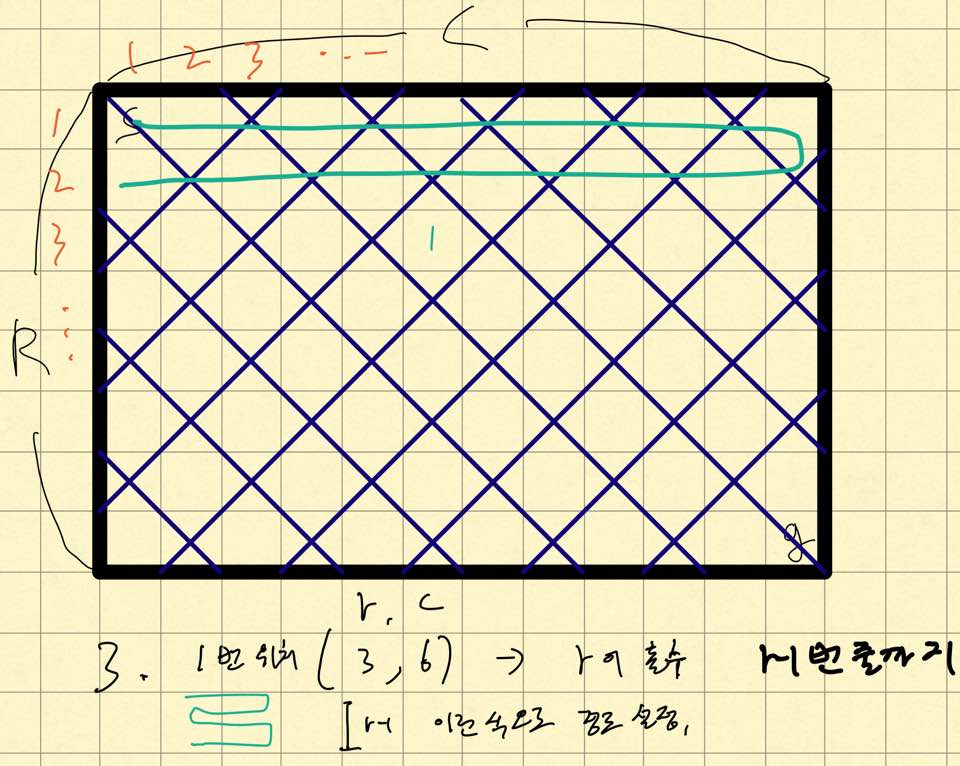 C
1 2 3 ...
S
1
2
3
⋮
R
1
g
r, c
3. 1번 위치 (3, 6) → r이 홀수 r-1번 줄까지
[r-1 이런 식으로 경로 설정.